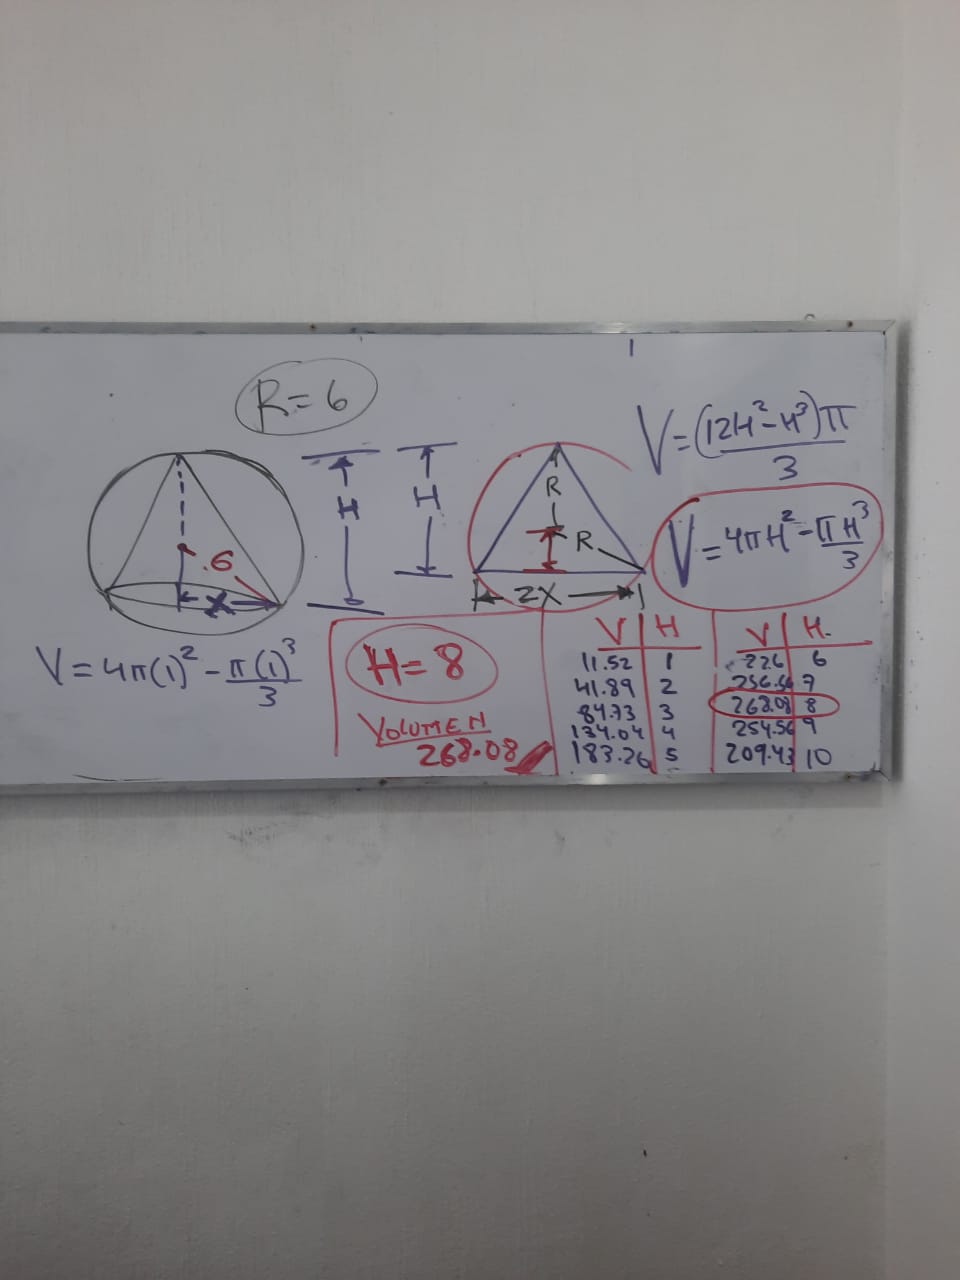 R=6
H
H
R
R
2X
.6
X
V=(12H²-H³)π/3
V=4πH²-πH³/3
V=4π(1)²-π(1)³/3
H=8
VOLUMEN
268.08
V | H
11.52 | 1
41.89 | 2
84.73 | 3
134.04 | 4
183.26 | 5
V | H.
226 | 6
256.56 | 7
268.08 | 8
254.56 | 9
209.43 | 10